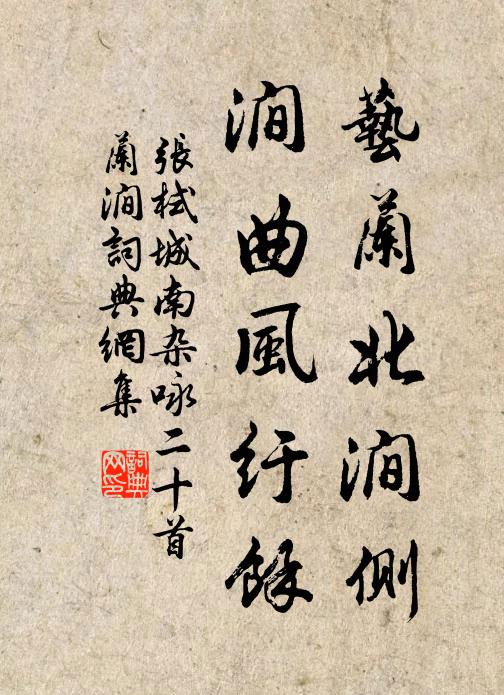 藝蘭北澗側
澗曲風紆餘
張栻城南杂咏二十首
蘭澗詞典網集
詞典网印